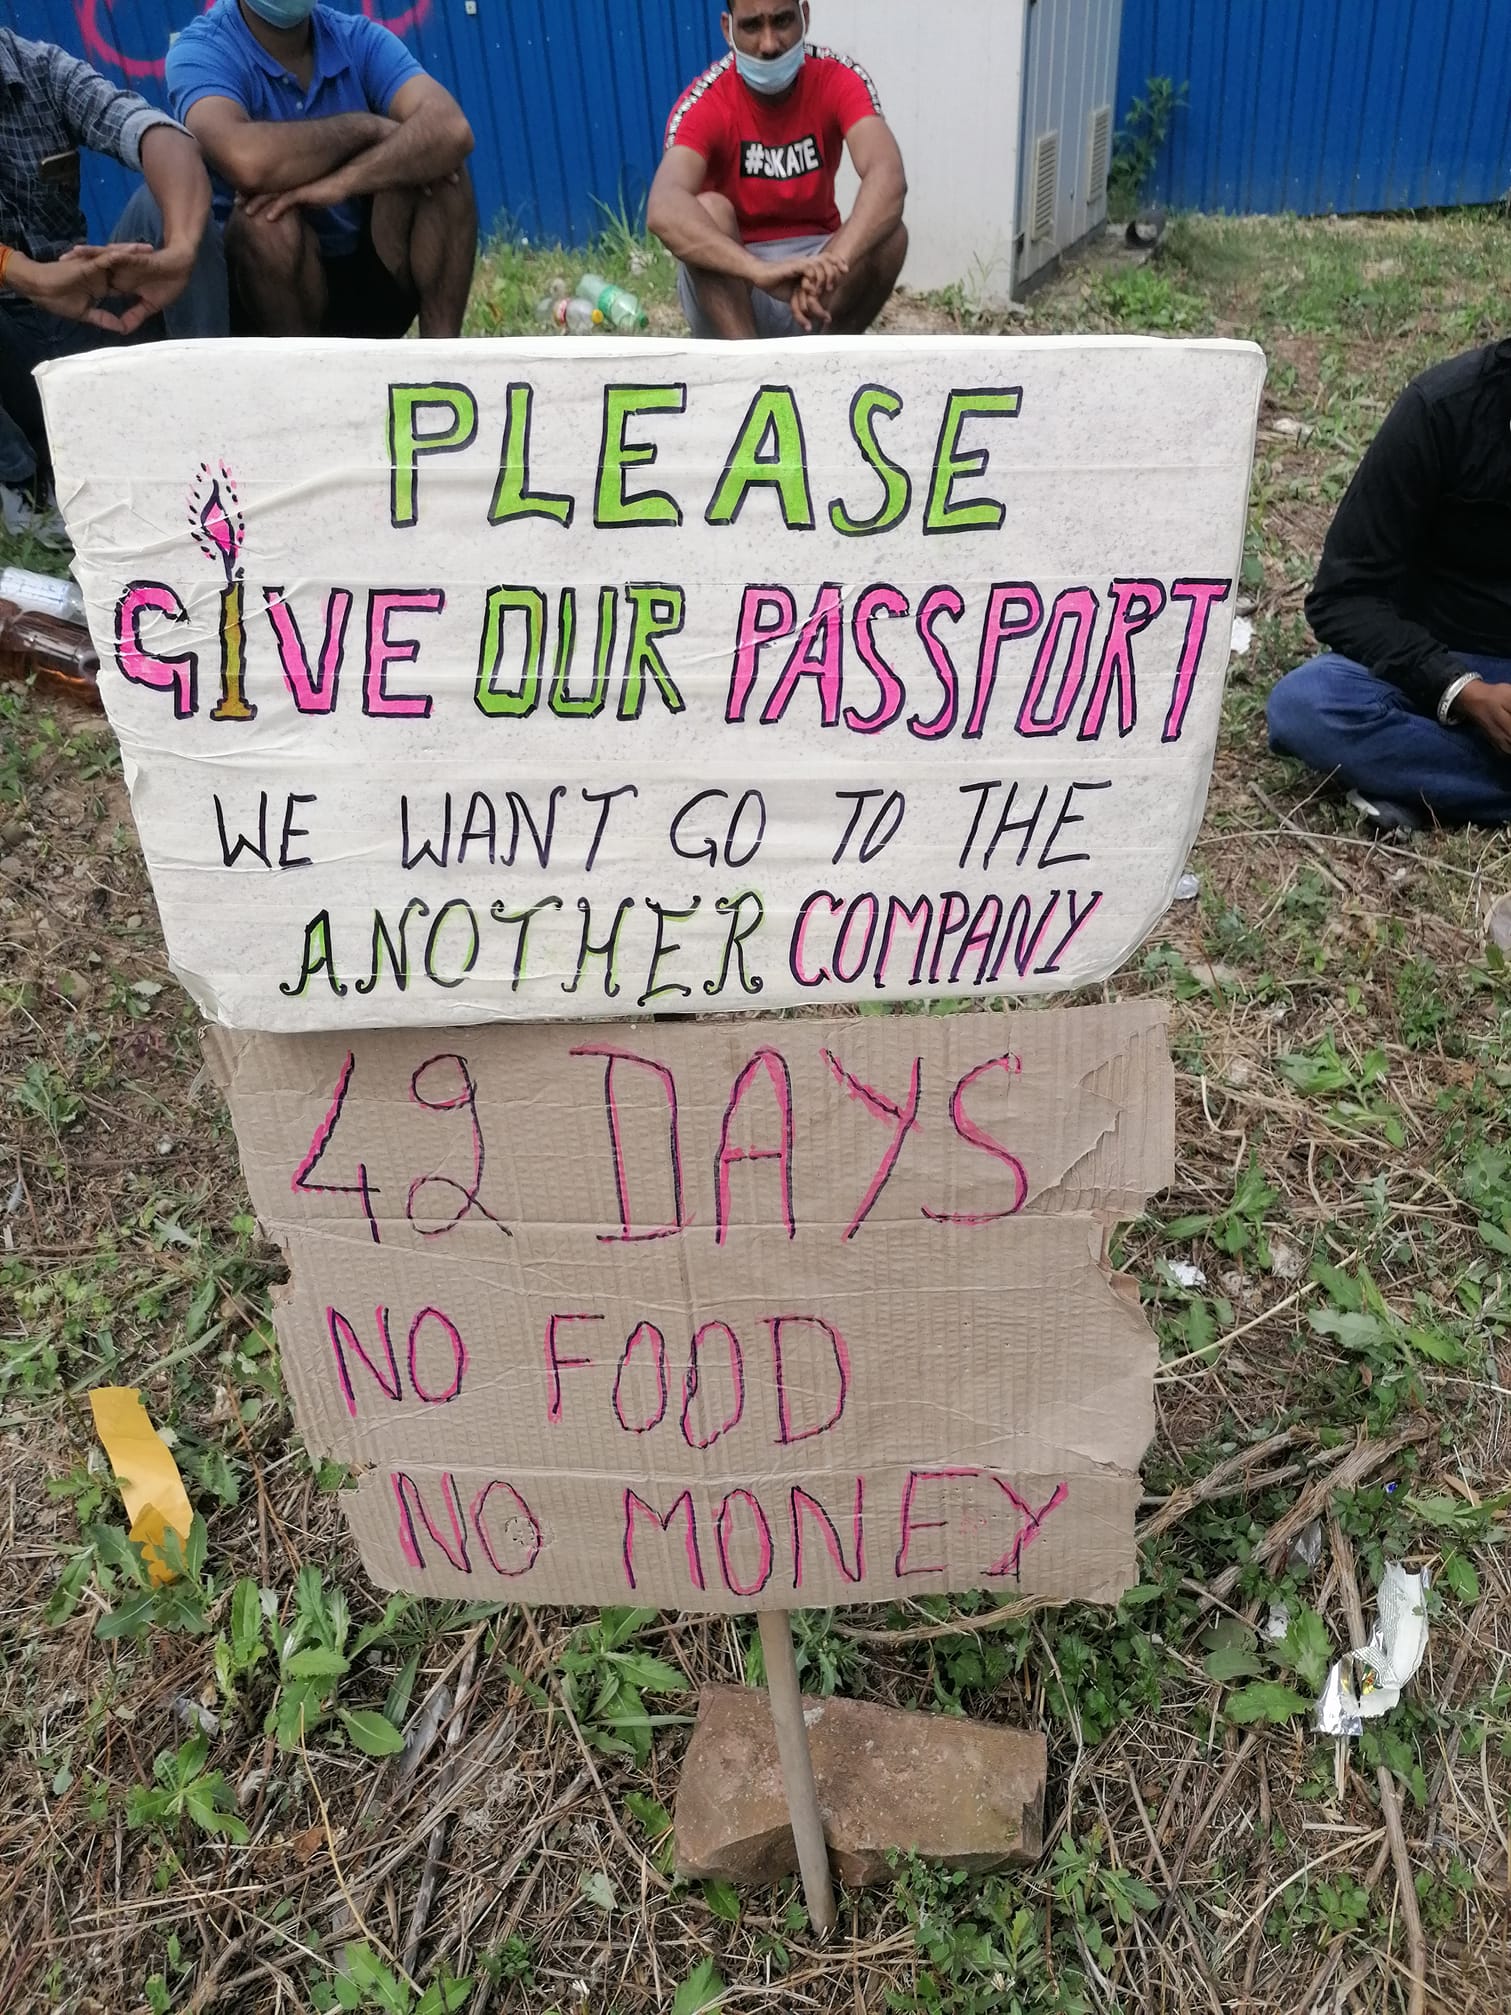 #SKATE
PLEASE
GIVE OUR PASSPORT
WE WANT GO TO THE
ANOTHER COMPANY
42 DAYS
NO FOOD
NO MONEY